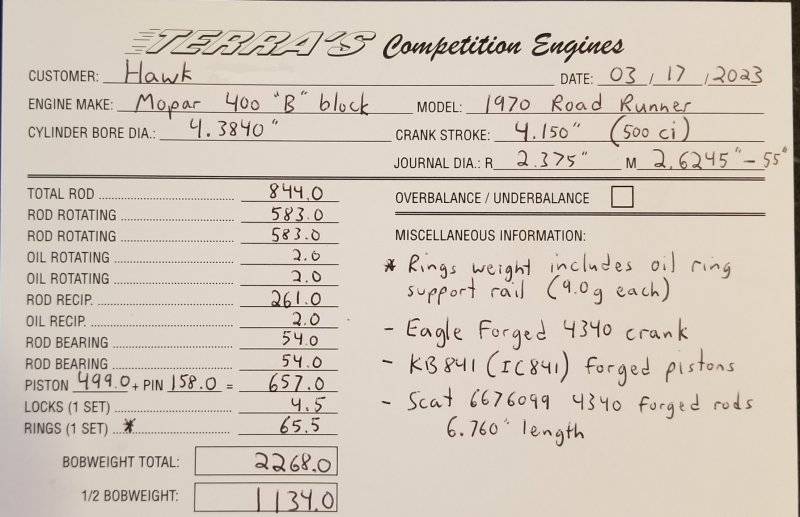 TERRA'S Competition Engines
CUSTOMER: Hawk DATE: 03 / 17 / 2023
ENGINE MAKE: Mopar 400 "B" block MODEL: 1970 Road Runner
CYLINDER BORE DIA.: 4.3840" CRANK STROKE: 4.150" (500 ci)
JOURNAL DIA.: R 2.375" M 2.6245" - 55"
TOTAL ROD 844.0
ROD ROTATING 583.0
ROD ROTATING 583.0
OIL ROTATING 2.0
OIL ROTATING 2.0
ROD RECIP. 261.0
OIL RECIP. 2.0
ROD BEARING 54.0
ROD BEARING 54.0
PISTON 499.0 + PIN 158.0 = 657.0
LOCKS (1 SET) 4.5
RINGS (1 SET) * 65.5
BOBWEIGHT TOTAL: 2268.0
1/2 BOBWEIGHT: 1134.0
OVERBALANCE / UNDERBALANCE
MISCELLANEOUS INFORMATION:
* Rings weight includes oil ring
support rail (9.0g each)
- Eagle Forged 4340 crank
- KB841 (IC841) forged pistons
- Scat 6676099 4340 forged rods
6.760" length